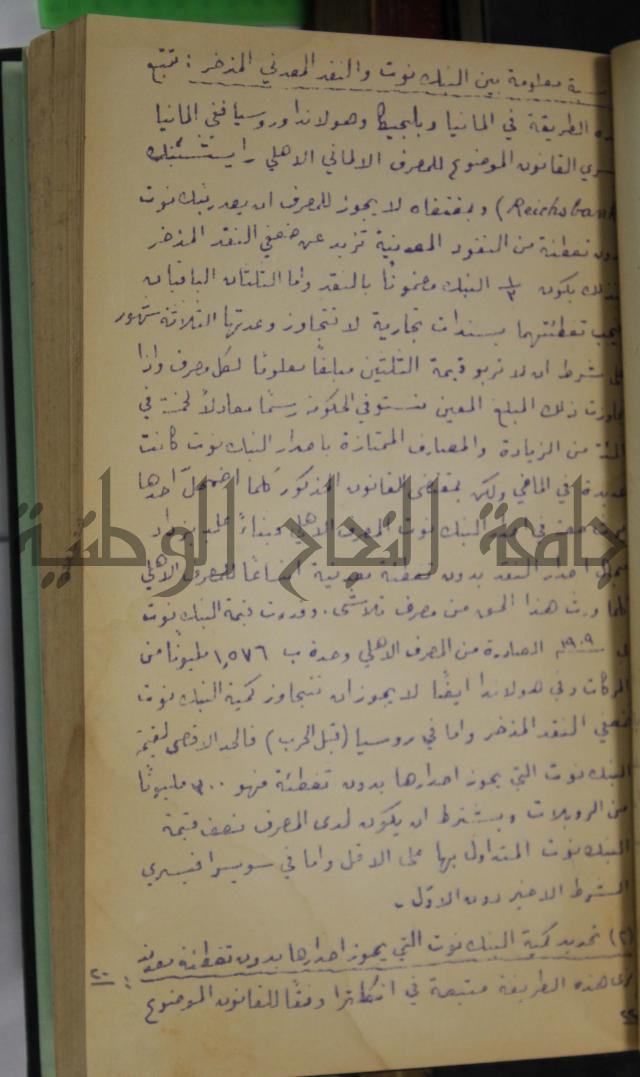 ـسبة معلومة بين البنك نوت والنقد المعدني المذخر : تتبع
ـذه الطريقة في المانيا وبلجيكا وهولاندا وروسيا ففي المانيا
ـسري القانون الموضوع للمصرف الالماني الاهلي رايشسبنك
(Reichsbank) وبمقتضاه لا يجوز للمصرف ان يصدر بنك نوت
بدون تغطية من النقود المعدنية تزيد عن ضعفي النقد المذخر
بذلك يكون ⅓ البنك مضمونًا بالنقد واما الثلثان الباقيان
فيجب تغطيتهما بسندات تجارية لا تتجاوز وعدتها الثلاثة شهور
على شرط ان لا تربو قيمة الثلثين مبلغًا معلومًا لكل مصرف واذا
تجاوزت ذلك المبلغ المعين فتستوفي الحكومة رسمًا معادلاً لخمسة في
المئة من الزيادة والمصارف الممتازة باصدار البنك نوت كانت
عديدة في الماضي ولكن بمقتضى القانون المذكور كلما اضمحل احدها
البنك نوت المصرف الاهلي وبناءً عليه يزداد
اصدار النقد بدون تغطية معدنية اتساعًا للمصرف الاهلي
كلما ورث هذا الحق من مصرف تلاشى. وقدرت قيمة البنك نوت
في ١٩٠٩ الصادرة من المصرف الاهلي وحده ب ١,٥٧٦ مليونًا من
الماركات وفي هولاندا ايضًا لا يجوز ان تتجاوز كمية البنك نوت
ضعفي النقد المذخر واما في روسيا (قبل الحرب) فالحد الاقصى لقيمة
البنك نوت التي يجوز اصدارها بدون تغطية فهو ٣٠٠ مليونًا
من الروبلات ويشترط ان يكون لدى المصرف نصف قيمة
البنك نوت المتداول بها على الاقل واما في سويسرا فيسري
الشرط الاخير دون الاول.
(٢) تحديد كمية البنك نوت التي يجوز اصدارها بدون تغطية معدنية :
نرى هذه الطريقة متبعة في انكلترا وفقًا للقانون الموضوع
٢٠
جامعة النجاح الوطنية